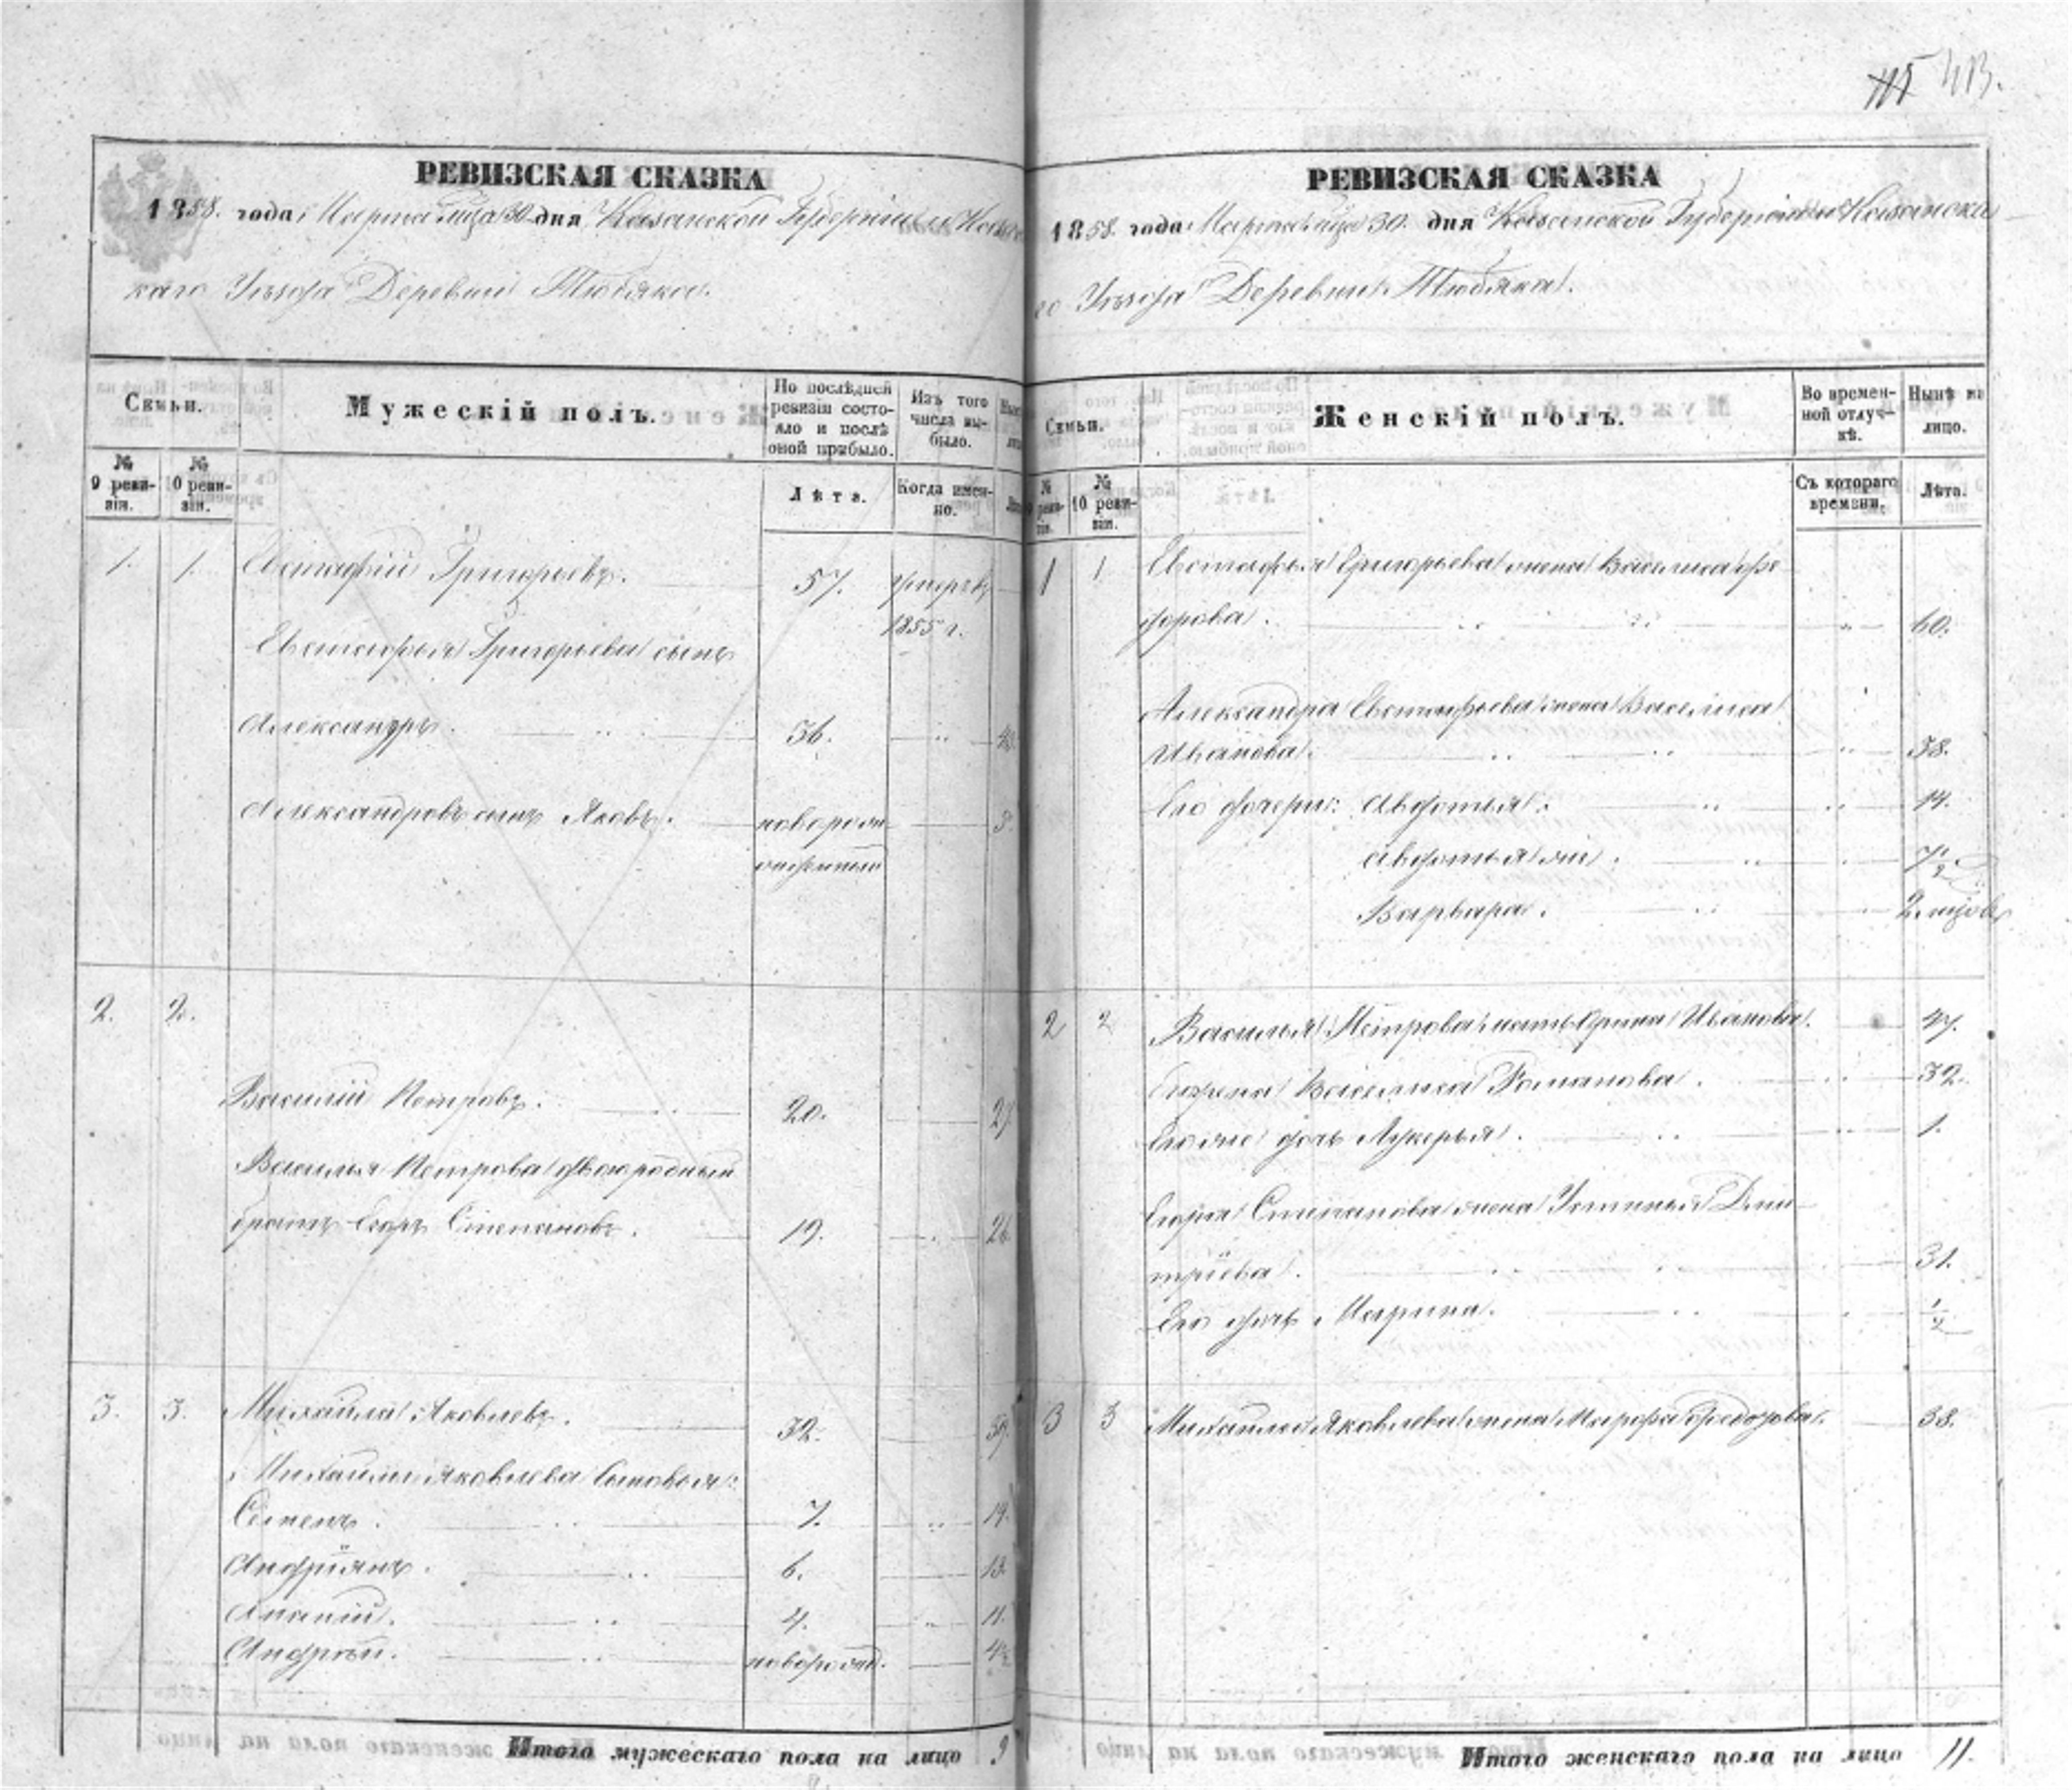 413.
РЕВИЗСКАЯ СКАЗКА
1858. года Марта м̃ца 30 дня Казанской Губерніи и Каза
каго Уѣзда Деревни Тюбяка.
Семьи.
Мужескій полъ.
По послѣдней ревизіи состояло и послѣ оной прибыло.
Изъ того числа выбыло.
№ 9 ревизіи.
№ 10 ревизіи.
Лѣта.
Когда именно.
1. 1. Евстафій Григорьевъ. 57. умеръ въ
1855 г.
Евстафья Григорьева сынъ
Александръ. 36.
Александровъ сынъ Яковъ. новорож-
денный
2. 2.
Василій Петровъ. 20. 27.
Василья Петрова двоюродный
братъ Егоръ Степановъ. 19. 26
3. 3. Михайла Яковлевъ. 32. 39.
Михайлы Яковлева сыновья:
Семенъ. 7. 14.
Андріянъ. 6. 13
Ананій. 4. 11.
Андрей. новорожд.
Итого мужескаго пола на лицо 9
РЕВИЗСКАЯ СКАЗКА
1858. года Марта м̃ца 30. дня Казанской Губерніи и Казанска
го Уѣзда Деревни Тюбяка.
Семьи.
Женскій полъ.
Во временной отлучкѣ.
Нынѣ на лицо.
№ 9 ревизіи.
№ 10 ревизіи.
Съ котораго времени.
Лѣта.
1 1 Евстафья Григорьева жена Василиса Фе
дорова. 60.
Александра Евстафьева жена Василиса
Иванова. 38.
Его дочери: Авдотья. 14.
Авдотья же. 7 1/2
Варвара. 2 м̃цовъ
2 2 Василья Петрова мать Ирина Иванова. 47.
Василиса Романова. 32.
Его же дочь Лукерья. 1.
Егора Степанова жена Устинья Дми-
тріева. 31.
Его дочь Марина. 1/2
3 3 Михайлы Яковлева жена Марфа Федорова. 38.
Итого женскаго пола на лицо 11.